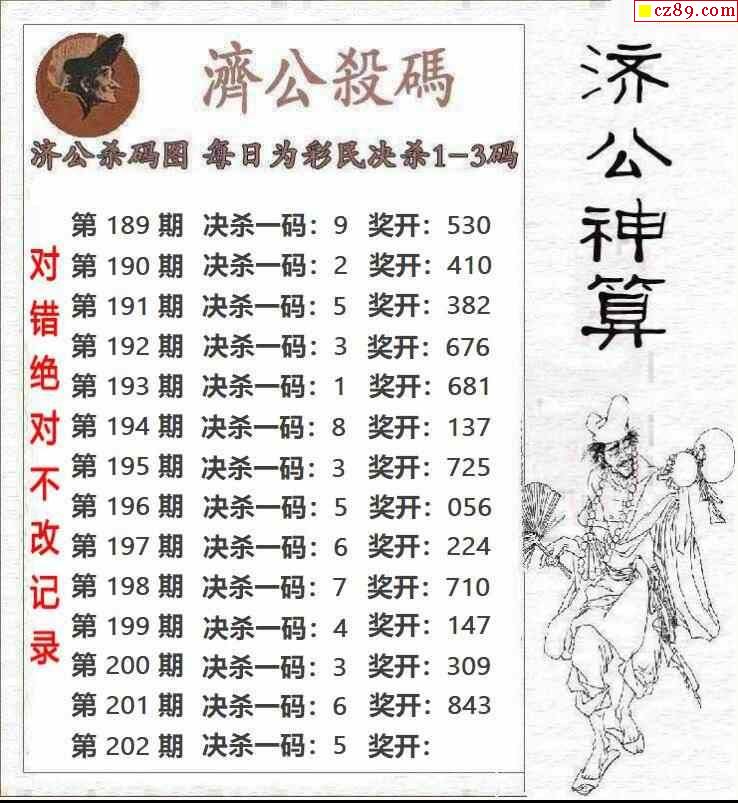 cz89.com
濟公殺碼
济公杀码图 每日为彩民决杀1-3码
第 189 期 决杀一码：9 奖开：530
第 190 期 决杀一码：2 奖开：410
第 191 期 决杀一码：5 奖开：382
第 192 期 决杀一码：3 奖开：676
第 193 期 决杀一码：1 奖开：681
第 194 期 决杀一码：8 奖开：137
第 195 期 决杀一码：3 奖开：725
第 196 期 决杀一码：5 奖开：056
第 197 期 决杀一码：6 奖开：224
第 198 期 决杀一码：7 奖开：710
第 199 期 决杀一码：4 奖开：147
第 200 期 决杀一码：3 奖开：309
第 201 期 决杀一码：6 奖开：843
第 202 期 决杀一码：5 奖开：
对错绝对不改记录
济公神算